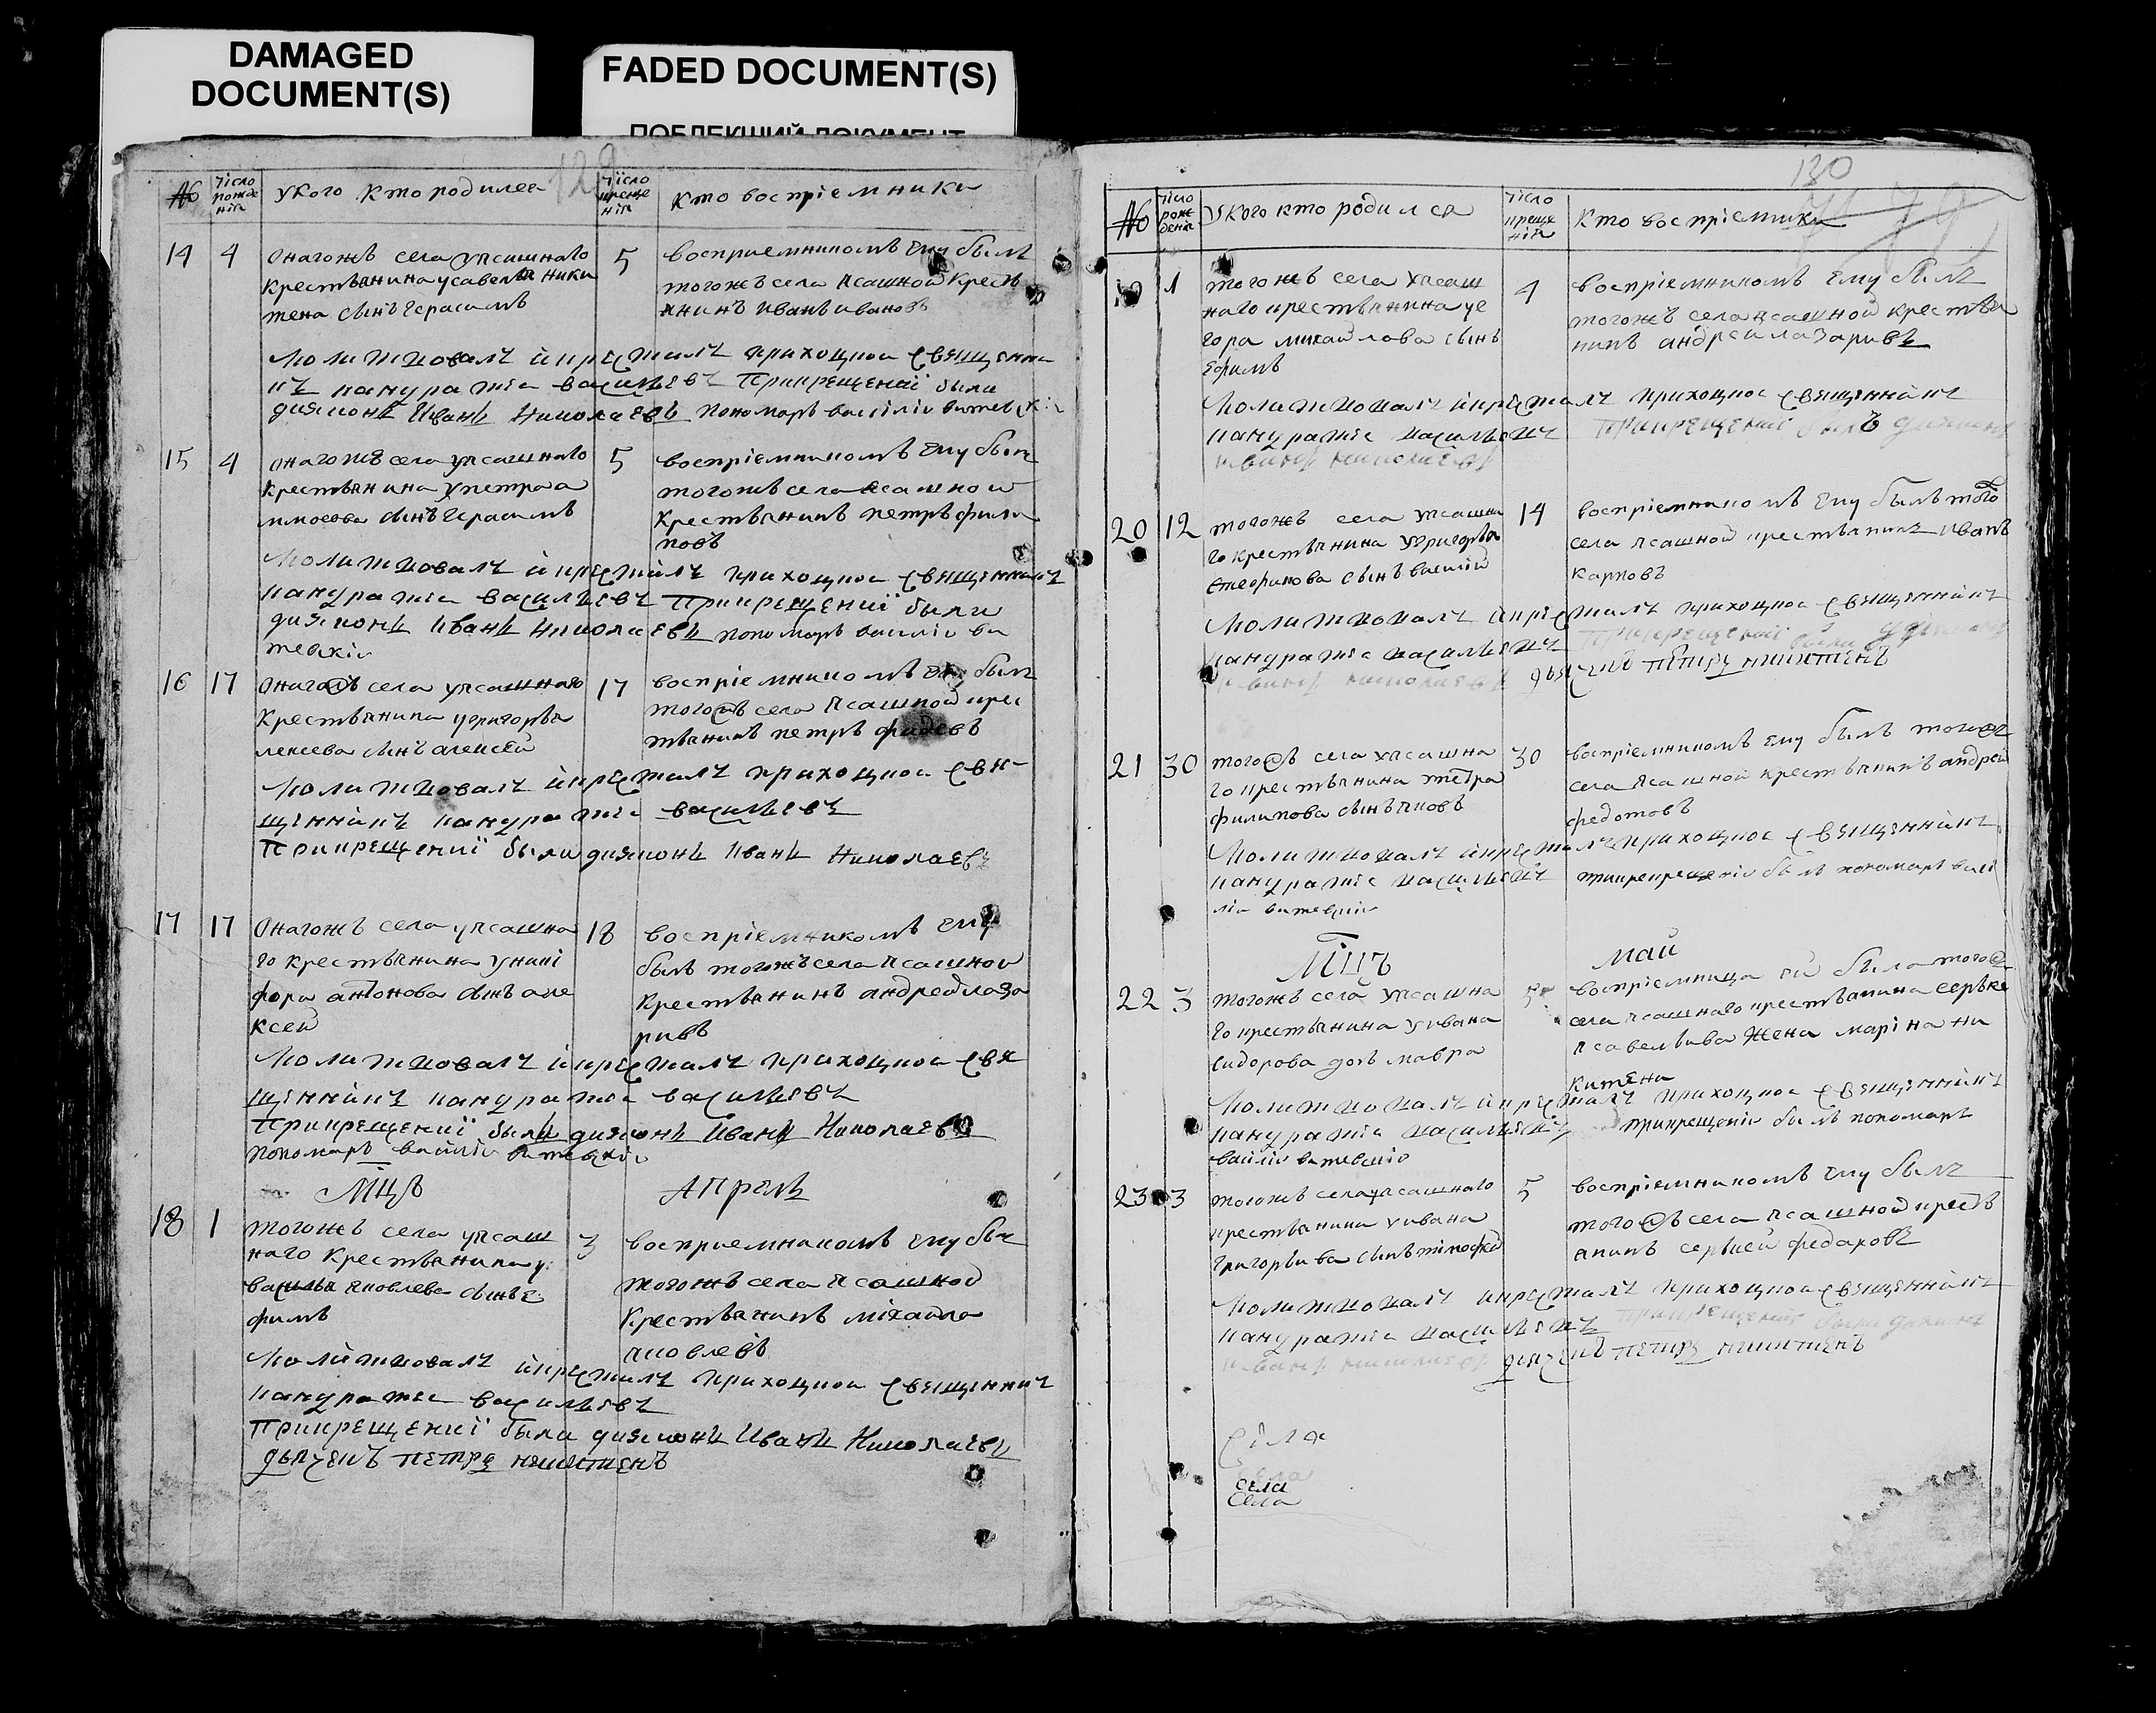 DAMAGED
DOCUMENT(S)
FADED DOCUMENT(S)
ПОБЛЕКШИЙ ДОКУМЕНТ
129
№
число рожденія
у кого кто родилса
число крещенія
кто воспріемники
14 4
онагожъ села ѵясашнаго
крестьянина усавелья ники
тена сынъ герасимъ
5
восприемникомъ ему былъ
тогожъ села ясашной кресть
янинъ иванъ ивановъ
молитвовалъ и крестилъ приходцкои священни
къ панкратеи васильевъ При крещениї были
дияконъ Иванъ Николаевъ пономарь василии витевскіи
15 4
онагожъ села ѵясашнаго
крестьянина упетра а
кимоева сынъ герасимъ
5
воспріемникомъ ему былъ
тогожъ села ясашной
крестьянинъ петръ фили
повъ
молитвовалъ и крестилъ приходцкои священникъ
панкратеи васильевъ При крещениї были
дияконъ Иванъ Николаевъ пономарь василии ви
тевскіи
16 17
онагожъ села ѵясашнаго
крестьянина угригорья
лексеева сынъ алексей
17
воспріемникомъ ему былъ
тогожъ села ясашной крес
тьянинъ петръ фадеевъ
молитвовалъ и крестилъ приходцкои свя
щенникъ панкратеи васильевъ
При крещениї были дияконъ Иванъ Николаевъ
17 17
онагожъ села ѵясашна
го крестьянина уники
фора антонова сынъ але
ксей
18
воспріемникомъ ему
былъ тогожъ села ясашной
крестьянинъ андрей лаза
ривъ
молитвовалъ и крестилъ приходцкои свя
щенникъ панкратеи васильевъ
При крещениї были дияконъ Иванъ Николаевъ
пономарь василии витевскіи
Мцъ Апрель
18 1
тогожъ села ѵясаш
наго крестьянина у
василья яковлева сынъ е
фимъ
3
восприемникомъ ему былъ
тогожъ села ясашной
крестьянинъ міхайла
яковлевъ
молитвовалъ и крестилъ приходцкои священникъ
панкратеи васильевъ
При крещениї были дияконъ Иванъ Николаевъ
дьячекъ петръ никитенъ
130
№
число рождения
у кого кто родился
число крещенія
кто воспріемники
19 1
тогожъ села ѵясаш
наго крестьянина уе
гора михайлова сынъ
ефимъ
4
воспріемникомъ ему былъ
тогожъ села ясашной крестья
нинъ андрей лазаривъ
молитвовалъ и крестилъ приходцкои священникъ
панкратеи васильевъ При крещениї былъ диякон
иванъ николаевъ
20 12
тогожъ села ѵясашна
го крестьянина угригорья
сынъ василій
14
воспріемникомъ ему былъ того
села ясашной крестьянинъ иванъ
карповъ
молитвовалъ и крестилъ приходцкои священникъ
панкратеи васильевъ При крещениї были диякон
иванъ николаевъ дьячекъ петръ никитенъ
21 30
тогожъ села ѵясашна
го крестьянина петра
филипова сынъ яковъ
30
воспріемникомъ ему былъ тогожъ
села ясашной крестьянинъ андрей
федотовъ
молитвовалъ и крестилъ приходцкои священникъ
панкратеи васильевъ при крещеніи былъ пономарь васи
ліи витевскіи
Мцъ май
22 3
тогожъ села ѵясашна
го крестьянина уивана
сидорова дочь мавра
5
воспріемница ей была тогожъ
села ясашнаго крестьянина серьке
савельива жена маріна ни
китена
молитвовалъ и крестилъ приходцкои священникъ
панкратеи васильевъ при крещеніи былъ пономарь
василіи витевскіи
23 3
тогожъ села ѵясашнаго
крестьянина уивана
григорьива сынъ тімофей
5
воспріемникомъ ему былъ
тогожъ села ясашной кресть
янинъ сергией федаровъ
молитвовалъ и крестилъ приходцкои священникъ
панкратеи васильевъ При крещениї были диякон
иванъ николаевъ дьячекъ петръ никитенъ
села
села
села